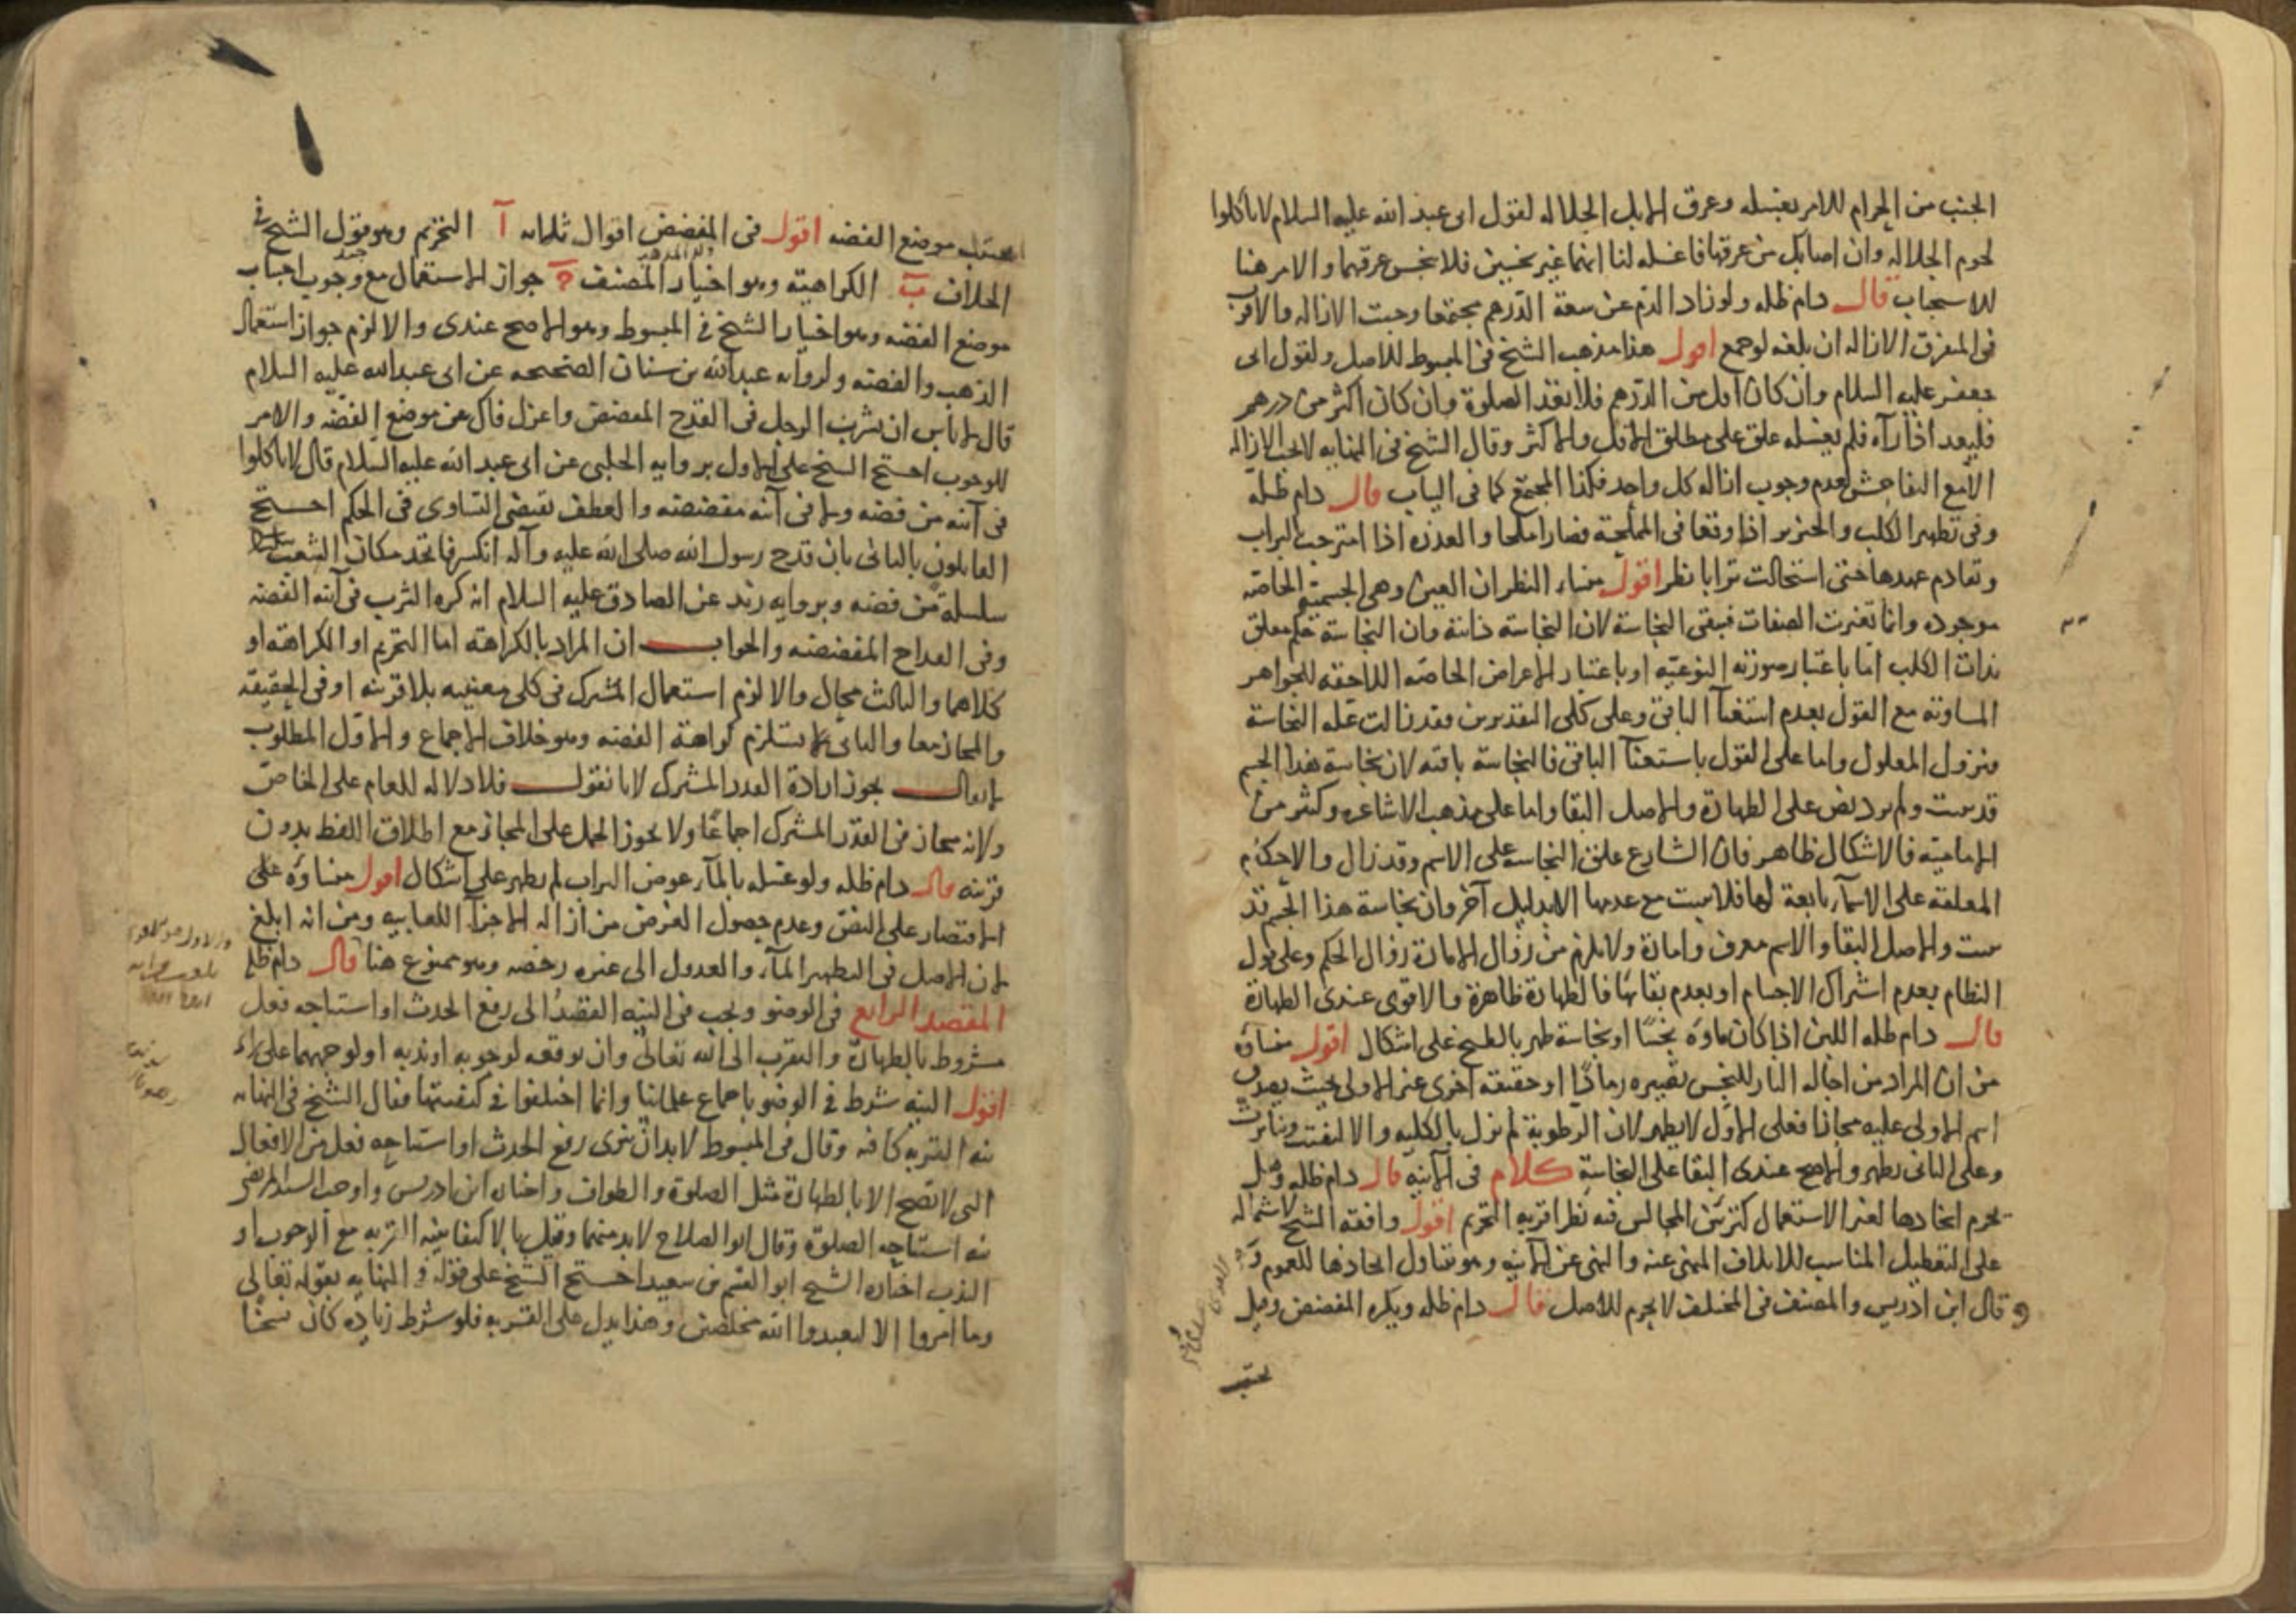 الجنب من الحرام للامر بغسله وعرق الابل الجلاله لقول ابى عبد الله عليه السلام لا تاكلوا
لحوم الجلاله وان اصابك من عرقها فاغسله لنا انهما غير نجسين فلا ينجس عرقهما والامر هنا
للاستحباب قال دام ظله ولو زاد الدم عن سعة الدرهم مجتمعا وجبت الازاله والاقرب
فى المتفرق الازاله ان بلغه لو جمع اقول هذا مذهب الشيخ فى المبسوط للاصل ولقول ابى
جعفر عليه السلام وان كان اقل من الدرهم فلا يعد الصلوة وان كان اكثر من درهم
فليعد اذا رآه فلم يغسله علق على مطلق الاقل والاكثر وقال الشيخ فى النهايه لا تجب الازاله
الا مع التفاحش لعدم وجوب ازاله كل واحد فكذا المجتمع كما فى الباب قال دام ظله
وفى تطهير الكلب والخنزير اذا وقعا فى المملحة فصارا ملحا والعذره اذا امتزجت بالتراب
وتقادم عهدها حتى استحالت ترابا نظر اقول منشاء النظر ان العين وهى الجسمية الخاصه
موجوده وانما تغيرت الصفات فتبقى النجاسة لان النجاسة ذاتية وان النجاسة حكم معلق
بذات الكلب اما باعتبار صورته النوعيه او باعتبار الاعراض الخاصه اللاحقه للجواهر
المساويه مع القول بعدم استغنآ الباقى وعلى كلى التقديرين فقد زالت علة النجاسة
فيزول المعلول واما على القول باستغنآ الباقى فالنجاسة باقيه لان نجاسة هذا الجسم
قد ثبت ولم يرد نص على الطهارة والاصل البقا واما على مذهب الاشاعره وكثير من
الاماميه فالاشكال ظاهر فان الشارع علق النجاسه على الاسم وقد زال والاحكام
المعلقه على الاسمآء تابعة لها فلا يثبت مع عدمها الا بدليل آخر وان نجاسة هذا الجسم قد
ثبت والاصل البقا والاسم معرف وامارة ولا يلزم من زوال الامارة زوال الحكم وعلى قول
النظام بعدم اشتراك الاجسام او بعدم بقائها فالطهارة ظاهرة والاقوى عندى الطهارة
قال دام ظله اللبن اذا كان ماؤه نجسا او نجاسة طهر بالطبخ على اشكال اقول منشاؤه
من ان المراد من احاله النار للنجس تصييره رمادا او حقيقه اخرى غير الاولى بحيث يصدق
اسم الاولى عليه مجازا فعلى الاول لا يطهر لان الرطوبة لم تزل بالكليه والا لتفتت وتناثرت
وعلى الثانى يطهر والاصح عندى البقا على النجاسة كلام فى الآنيه قال دام ظله وهل
يحرم اتخاذها لغير الاستعمال كتزيين المجالس فيه نظر اقربه التحريم اقول وافقه الشيخ لاشتماله
على التعطيل المناسب للاتلاف المنهى عنه والنهى عن الآنيه وهو يتناول اتخاذها للعموم
قال ابن ادريس والمصنف فى المختلف لا يحرم للاصل قال دام ظله ويكره المفضض وقيل
يجتنب
يجتنب موضع الفضه اقول فى المفضض اقوال ثلثه آ التحريم وهو قول الشيخ فى
الخلاف ب الكراهية وهو اختيار المصنف ج جواز الاستعمال مع وجوب اجتناب
موضع الفضه وهو اختيار الشيخ فى المبسوط وهو الاصح عندى والا لزم جواز استعمال
الذهب والفضه ولروايه عبد الله بن سنان الصحيحه عن ابى عبد الله عليه السلام
قال لا باس ان يشرب الرجل فى القدح المفضض واعزل فاك عن موضع الفضه والامر
للوجوب احتج الشيخ على الاول بروايه الحلبى عن ابى عبد الله عليه السلام قال لا تاكلوا
فى آنيه من فضه ولا فى آنيه مفضضه والعطف يقتضى التساوى فى الحكم احتج
القايلون بالثانى بان قدح رسول الله صلى الله عليه وآله انكسر فاتخذ مكان الشعب
سلسلة من فضه وبروايه بريد عن الصادق عليه السلام انه كره الشرب فى آنيه الفضه
وفى القداح المفضضه والجواب ان المراد بالكراهة اما التحريم او الكراهة او
كلاهما والثالث محال والا لزم استعمال المشترك فى كلى معنييه بلا قرينه او فى الحقيقه
والمجاز معا والثانى لا يستلزم كراهة الفضه وهو خلاف الاجماع والاول المطلوب
لا يقال يجوز ارادة القدر المشترك لانا نقول فلا دلاله للعام على الخاص
ولانه مجاز فى القدر المشترك اجماعا ولا يجوز الحمل على المجاز مع اطلاق اللفظ بدون
قرينه قال دام ظله ولو غسله بالمآء عوض التراب لم يطهر على اشكال اقول منشاؤه على
الاقتصار على النص وعدم حصول الغرض من ازاله الاجزآ اللعابيه ومن انه ابلغ
لان الاصل فى التطهير المآء والعدول الى غيره رخصه وهو ممنوع هنا قال دام ظله
المقصد الرابع فى الوضو ويجب فى النيه القصد الى رفع الحدث او استباحه فعل
مشروط بالطهارة والتقرب الى الله تعالى وان يوقعه لوجوبه او ندبه او لوجههما على راى
اقول النيه شرط فى الوضو باجماع علمائنا وانما اختلفوا فى كيفيتها فقال الشيخ فى النهايه
نيه القربه كافيه وقال فى المبسوط لا بد ان ينوى رفع الحدث او استباحه فعل من الافعال
التى لا تصح الا بالطهارة مثل الصلوة والطواف واختاره ابن ادريس واوجب السيد المرتضى
نيه استباحه الصلوة وقال ابو الصلاح لا بد منهما وقيل بالاكتفا بنيه القربه مع الوجوب او
الندب اختاره الشيخ ابو القسم بن سعيد احتج الشيخ على قوله فى النهايه بقوله تعالى
وما امروا الا ليعبدوا الله مخلصين وهذا يدل على القربه فلو شرط زياده كان نسخا